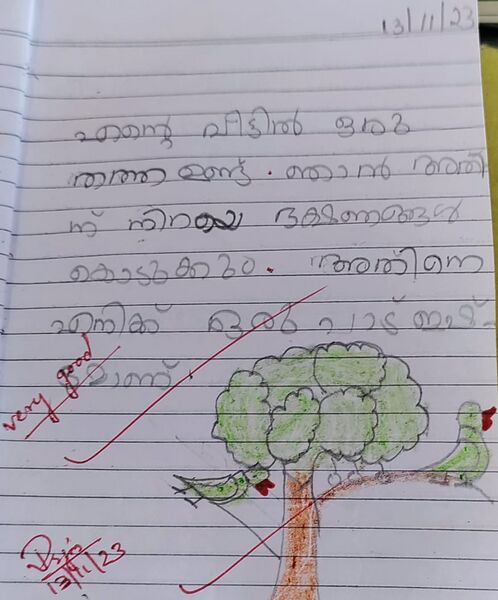 13/11/23
എന്റെ വീട്ടിൽ ഒരു
തത്ത ഉണ്ട്. ഞാൻ അതി
ന് നിറയെ ഭക്ഷണങ്ങൾ
കൊടുക്കും. അതിനെ
എനിക്ക് ഒരു പാട് ഇഷ്
ടമാണ്.
very good
13/11/23